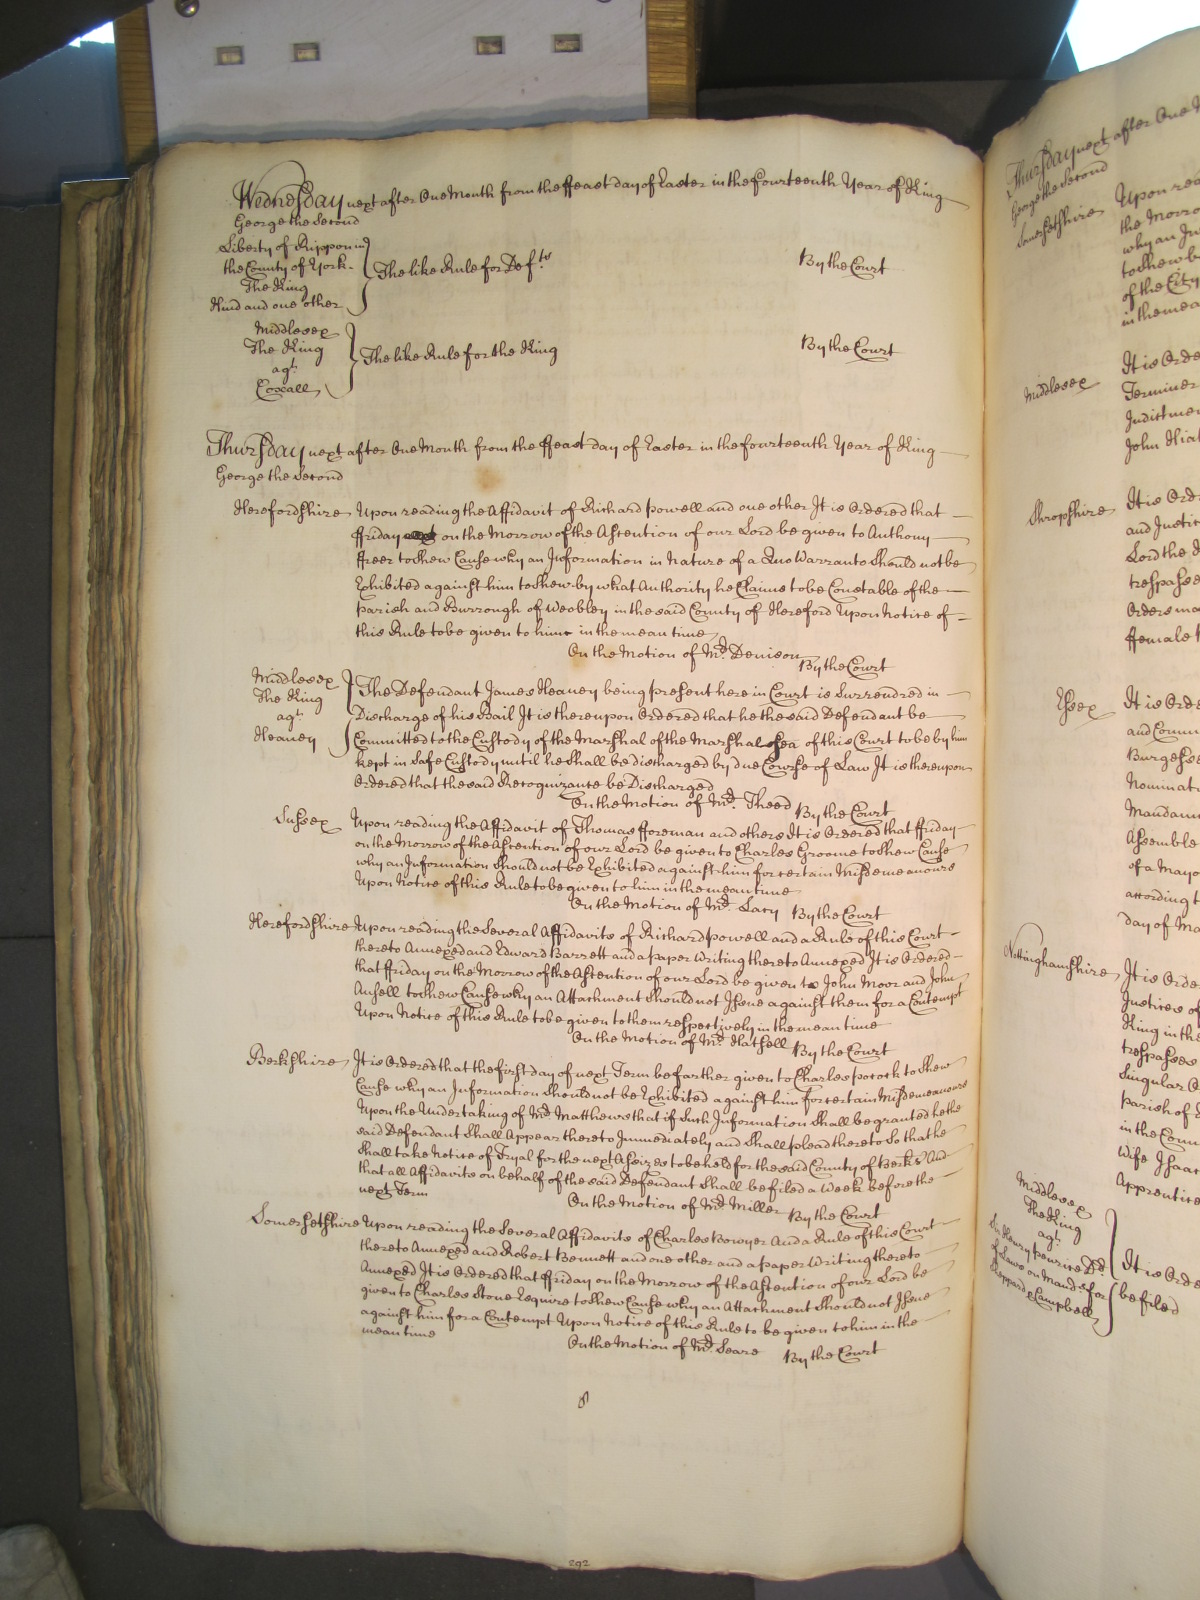 Wednesday next after One Month from the ffeast day of Easter in the fourteenth Year of King
George the Second
Liberty of Rippon in
the County of York
The King
Hind and one other
The like Rule for Def.ts
By the Court
Middlesex
The King
ag.t
Coxall
The like Rule for the King
By the Court
Thursday next after One Month from the ffeast day of Easter in the fourteenth Year of King
George the Second
Herefordshire
Upon reading the Affidavit of Richard Powell and one other It is Ordered that
ffriday on the Morrow of the Ascention of our Lord be given to Anthony
ffreer to Shew Cause why an Information in Nature of a Quo Warranto Should not be
Exhibited against him to Shew by what Authority he Claims to be Constable of the
Parish and Burrough of Weobley in the said County of Hereford Upon Notice of
this Rule to be given to him in the mean time
On the Motion of Mr. Denison
By the Court
Middlesex
The King
ag.t
Heaney
The Defendant James Heaney being present here in Court is Surrendred in
Discharge of his Bail It is thereupon Ordered that he the said Defendant be
Committed to the Custody of the Marshal of the Marshalsea of this Court to be by him
kept in Safe Custody until he Shall be discharged by due Course of Law It is thereupon
Ordered that the said Recognizance be Discharged
On the Motion of Mr. Theed By the Court
Sussex
Upon reading the Affidavit of Thomas fforeman and others It is Ordered that ffriday
on the Morrow of the Ascention of our Lord be given to Charles Groome to Shew Cause
why an Information Should not be Exhibited against him for certain Misdemeanours
Upon Notice of this Rule to be given to him in the mean time
On the Motion of Mr. Lacy By the Court
Herefordshire
Upon reading the Several Affidavits of Richard Powell and a Rule of this Court
thereto Annexed and Edward Barrett and a paper Writing thereto Annexed It is Ordered
that ffriday on the Morrow of the Ascention of our Lord be given to John Moor and John
Ansell to Shew Cause why an Attachment Should not Issue against them for a Contempt
Upon Notice of this Rule to be given to them respectively in the mean time
On the Motion of Mr. Hassell By the Court
Berkshire
It is Ordered that the first day of next Term be farther given to Charles Pocock to Shew
Cause why an Information Should not be Exhibited against him for certain Misdemeanours
Upon the Undertaking of Mr. Matthews that if Such Information Shall be granted he the
said Defendant Shall Appear thereto Immediately and Shall plead thereto So that he
Shall take Notice of Tryal for the next Assizes to be held for the said County of Berks And
that all Affidavits on behalf of the said Defendant Shall be filed a Week before the
next Term
On the Motion of Mr. Miller By the Court
Somersetshire
Upon reading the Several Affidavits of Charles Bowyer And a Rule of this Court
thereto Annexed and Robert Bennett and one other and a paper Writing thereto
Annexed It is Ordered that ffriday on the Morrow of the Ascention of our Lord be
given to Charles Stone Esquire to Shew Cause why an Attachment Should not Issue
against him for a Contempt Upon Notice of this Rule to be given to him in the
mean time
On the Motion of Mr. Seare By the Court
292
Thursday next after One
George the Second
Somersetshire
Upon
the Morro
why an
to Shew
of the City
in the mean
Middlesex
It is Orde
Terminer
Indictmen
John
Shropshire
It is Orde
and Justic
Lord the
trespasse
Orders ma
ffemale
Essex
It is Orde
and Comm
Burgesse
Nominat
Mandam
Assemble
of a Mayo
according t
day of Ma
Nottinghamshire
It is Orde
Justices of
King in the
trespasses
Singular
Parish of
in the Coun
Wife Isaac
Apprentice
Middlesex
The King
ag.t
Sir Henry Penrice D.r
of Laws on Mand.s for
Sheppard & Campbell
It is Orde
be filed